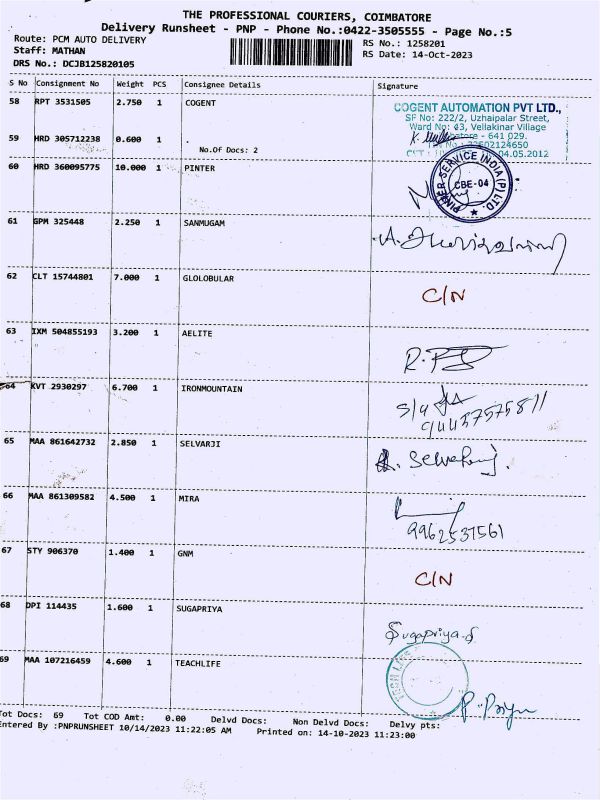 THE PROFESSIONAL COURIERS, COIMBATORE
Delivery Runsheet - PNP - Phone No.:0422-3505555 - Page No.:5
Route: PCM AUTO DELIVERY
RS No.: 1258201
Staff: MATHAN
RS Date: 14-Oct-2023
DRS No.: DCJB125820105
S No Consignment No Weight PCS Consignee Details Signature
58 RPT 3531505 2.750 1 COGENT
COGENT AUTOMATION PVT LTD.,
SF No: 222/2, Uzhaipalar Street,
Ward No: 43, Vellakinar Village
- 641 029.
59 HRD 305712238 0.600 1 .
No.Of Docs: 2
04.05.2012
60 HRD 360095775 10.000 1 PINTER
SERVICE INDIA (P) LTD.
CBE-04
61 GPM 325448 2.250 1 SANMUGAM
62 CLT 15744801 7.000 1 GLOLOBULAR
C/N
63 IXM 504855193 3.200 1 AELITE
64 KVT 2930297 6.700 1 IRONMOUNTAIN
65 MAA 861642732 2.850 1 SELVARJI
66 MAA 861309582 4.500 1 MIRA
9962531561
67 STY 906370 1.400 1 GNM
C/N
68 DPI 114435 1.600 1 SUGAPRIYA
Sugapriya.S
69 MAA 107216459 4.600 1 TEACHLIFE
P. Priya
Tot Docs: 69 Tot COD Amt: 0.00 Delvd Docs: Non Delvd Docs: Delvy pts:
Entered By :PNPRUNSHEET 10/14/2023 11:22:05 AM Printed on: 14-10-2023 11:23:00